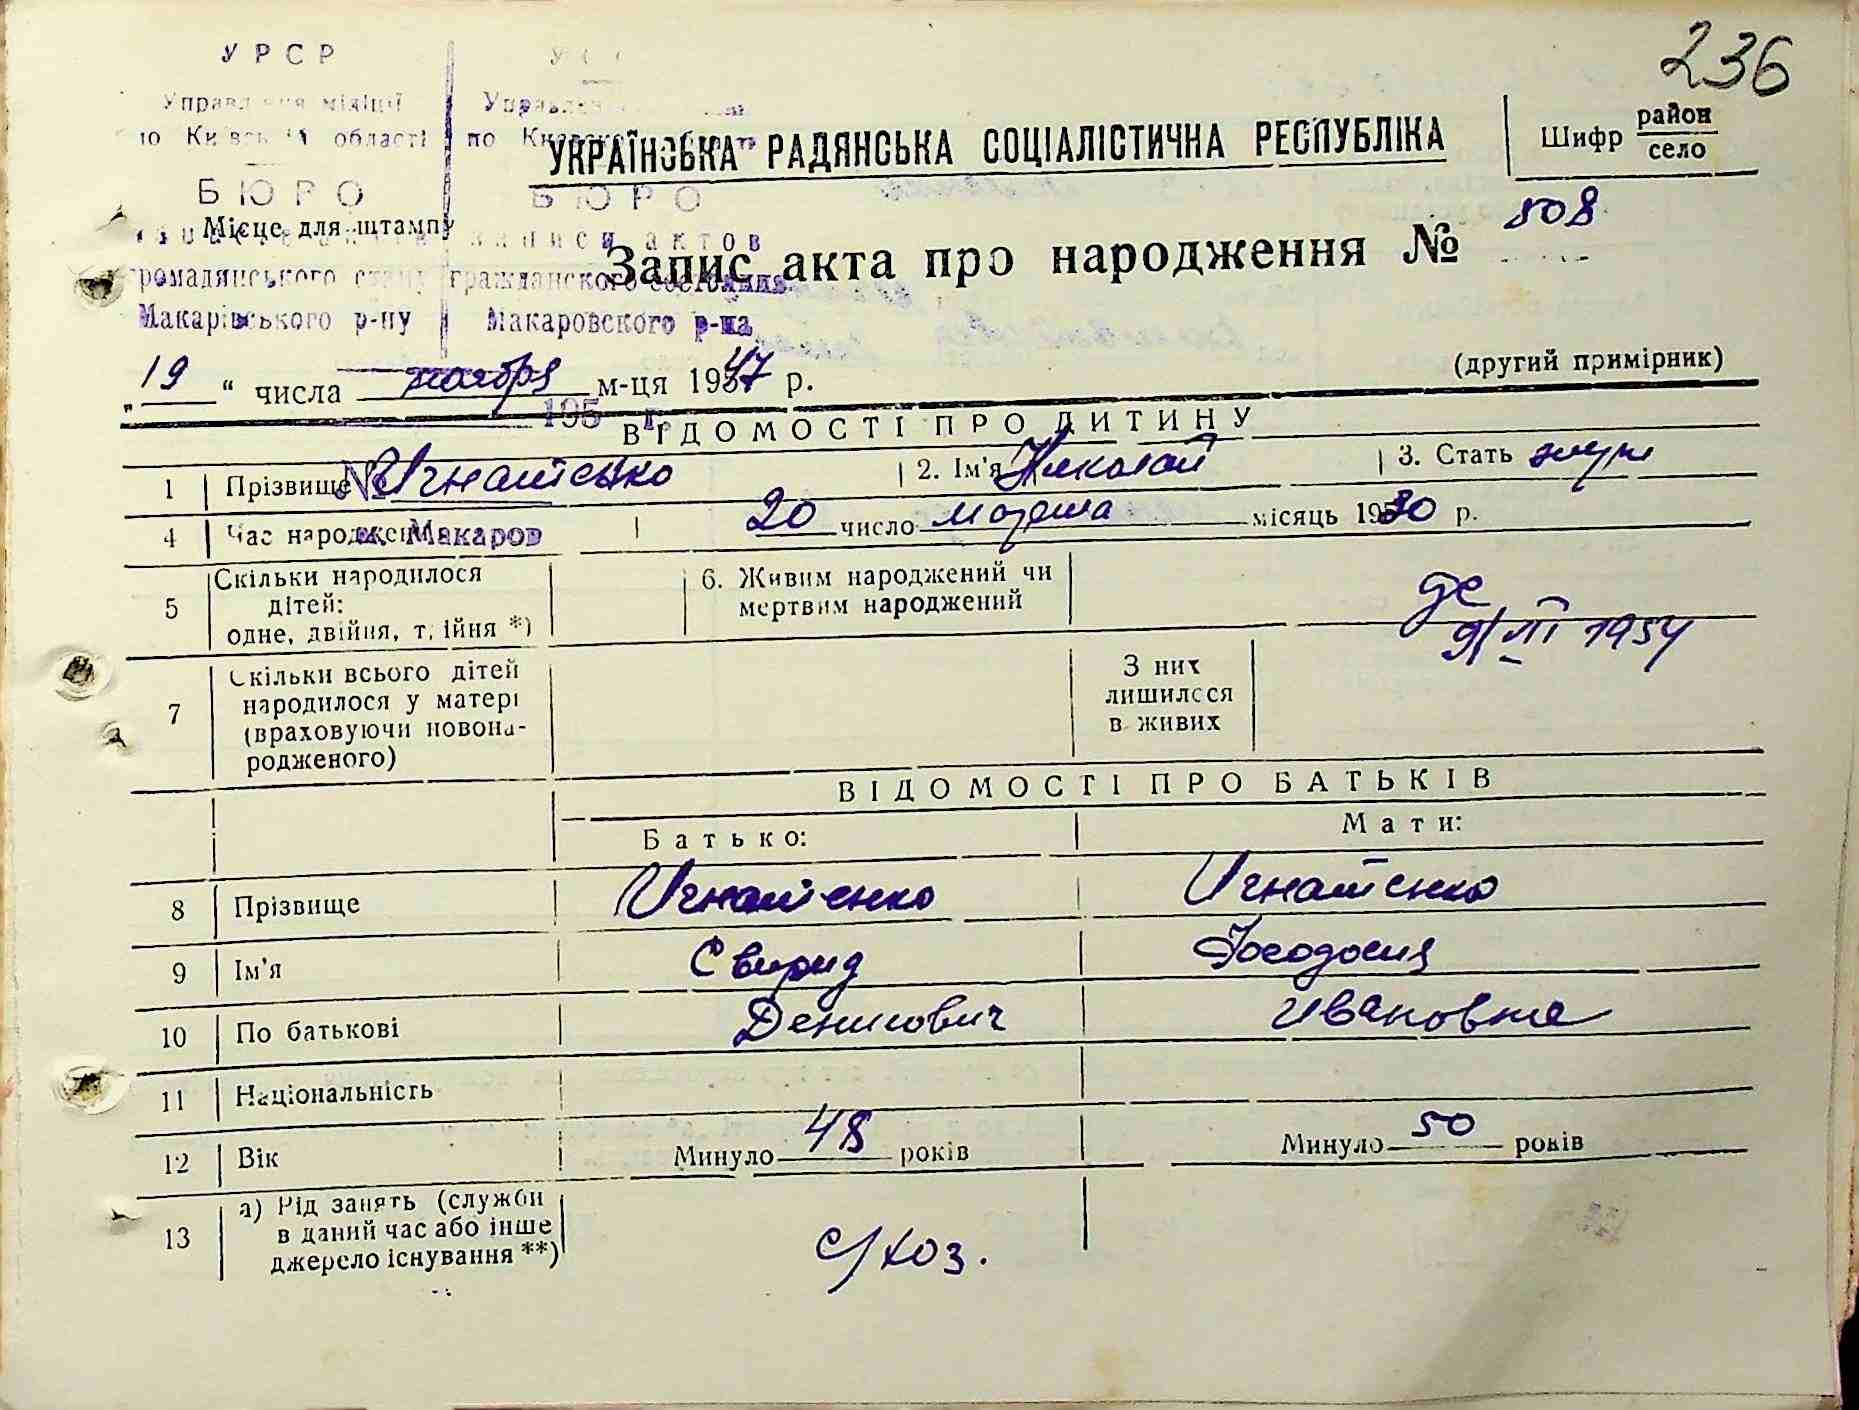 236
УРСР
Управління міліції
по Київській області
БЮРО
громадянського стану
Макарівського р-ну
по Киевской области
БЮРО
записи актов
гражданского состояния
Макаровского р-на
УКРАЇНСЬКА РАДЯНСЬКА СОЦІАЛІСТИЧНА РЕСПУБЛІКА
Шифр район
село
Місце для штампу
Запис акта про народження № 508
„19“ числа ноября м-ця 1947 р.
(другий примірник)
195 г.
ВІДОМОСТІ ПРО ДИТИНУ
1 Прізвище Игнатенко 2. Ім'я Николай 3. Стать муж
№
4 Час народження 20 число марта місяць 1930 р.
м. Макаров
5 Скільки народилося
дітей:
одне, двійня, трійня *)
6. Живим народжений чи
мертвим народжений
9/III 1954
7 Скільки всього дітей
народилося у матері
(враховуючи новона-
родженого)
З них
лишилося
в живих
ВІДОМОСТІ ПРО БАТЬКІВ
Батько: Мати:
8 Прізвище Игнатенко Игнатенко
9 Ім'я Свирид Феодосия
10 По батькові Денисович Ивановна
11 Національність
12 Вік Минуло 48 років Минуло 50 років
13 а) Рід занять (служби
в даний час або інше
джерело існування **)
с/хоз.